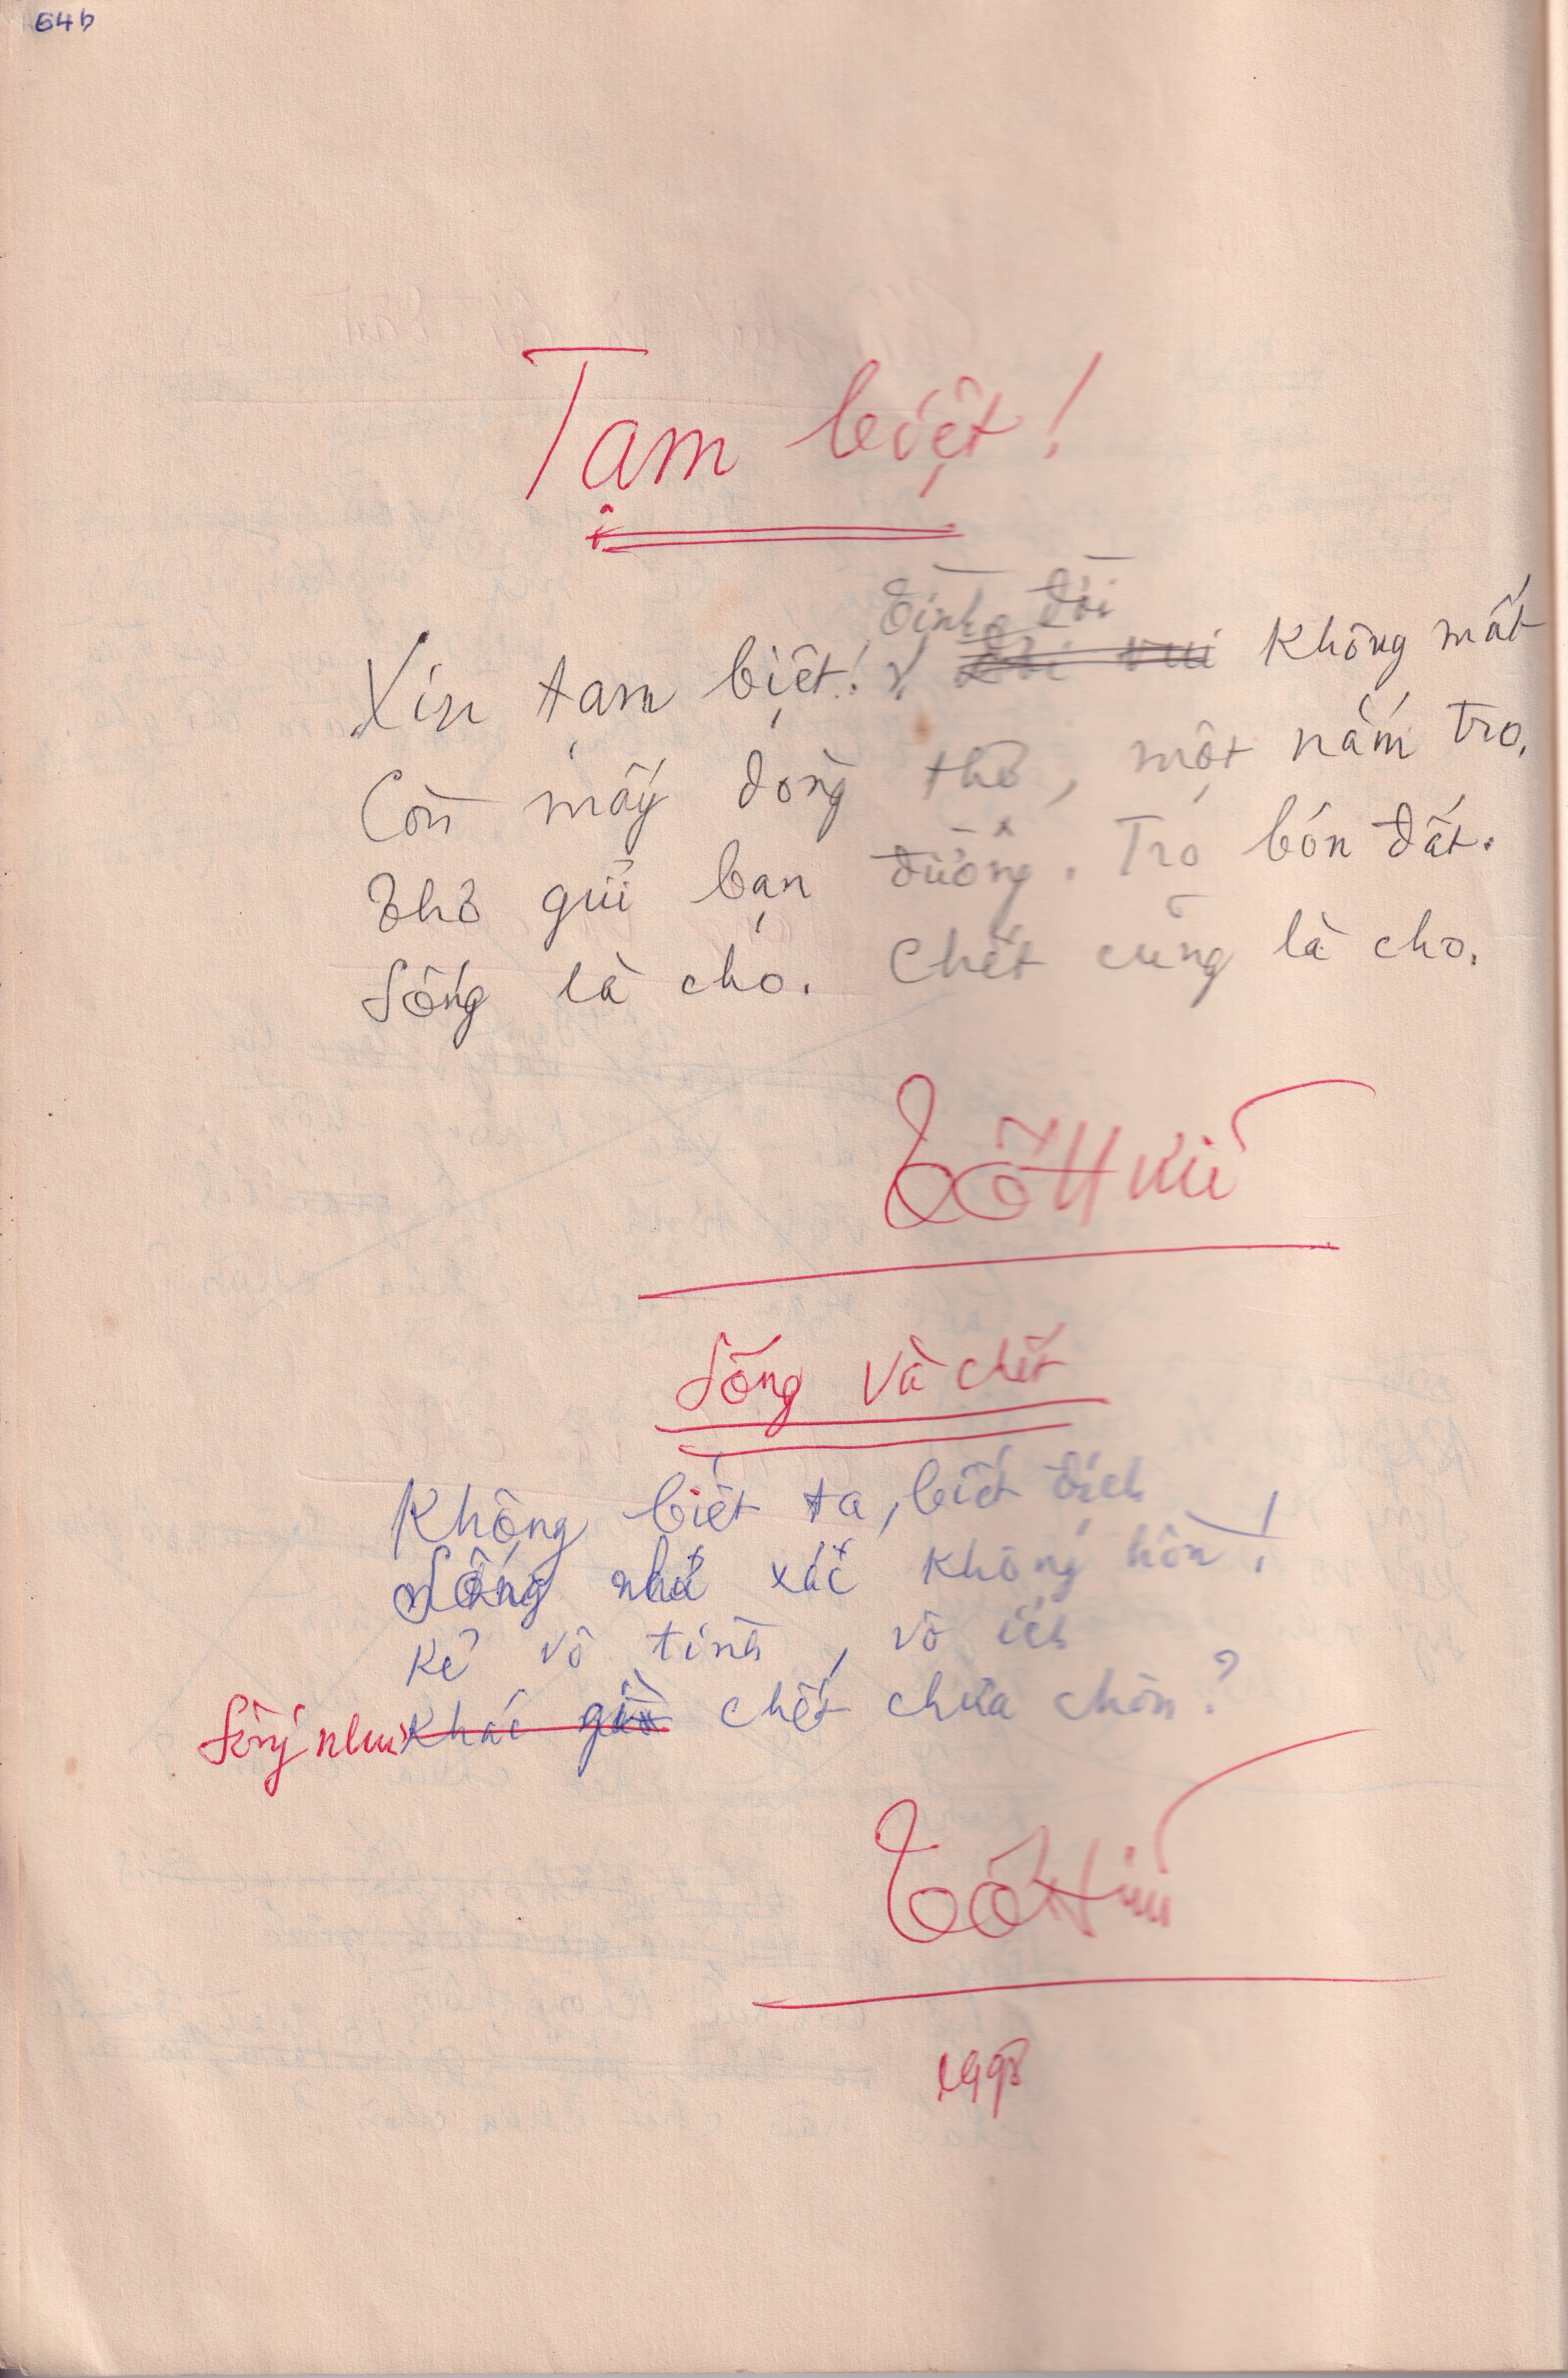 64b
Tạm biệt!
Tình đời
Xin tạm biệt! không mất
Còn mấy dòng thơ, một nắm tro.
Thơ gửi bạn đường. Tro bón đất.
Sống là cho. Chết cũng là cho.
Tố Hữu
Sống và chết
Không biết ta, biết địch
Sống như xác không hồn!
Kẻ vô tình, vô ích
Sống như chết chưa chôn?
Tố Hữu
1998